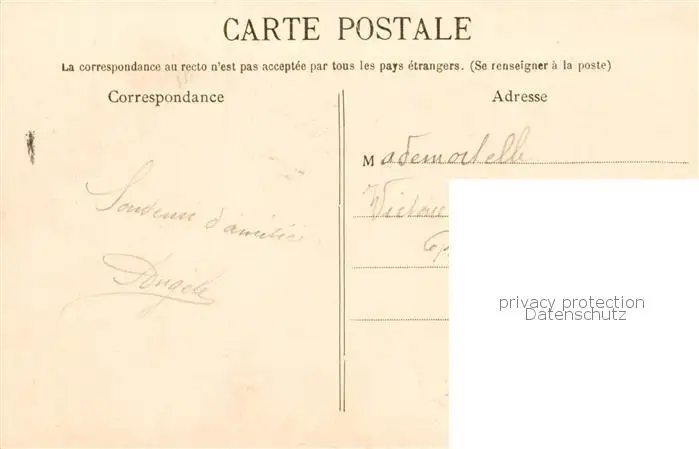 CARTE POSTALE
La correspondance au recto n'est pas acceptée par tous les pays étrangers. (Se renseigner à la poste)
Correspondance
Souvenir d'amitié
Angèle
Adresse
Mademoiselle
privacy protection
Datenschutz